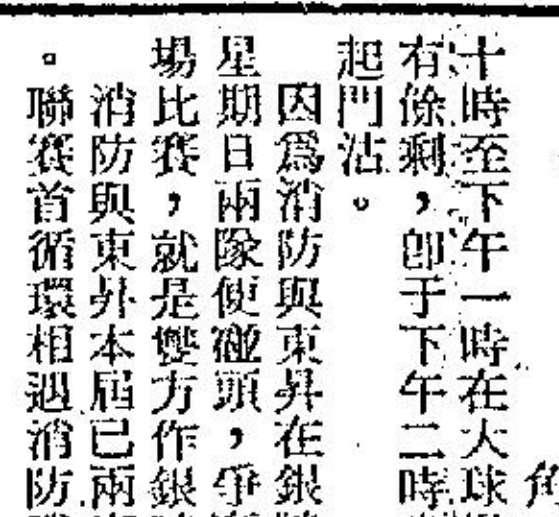 十時至下午一時在大球
有餘剩，卽于下午二時
起門沽。
因爲消防與東昇在銀
星期日兩隊便碰頭，爭
場比賽，就是雙方作銀
消防與東昇本屆已兩
。聯賽首循環相遇消防